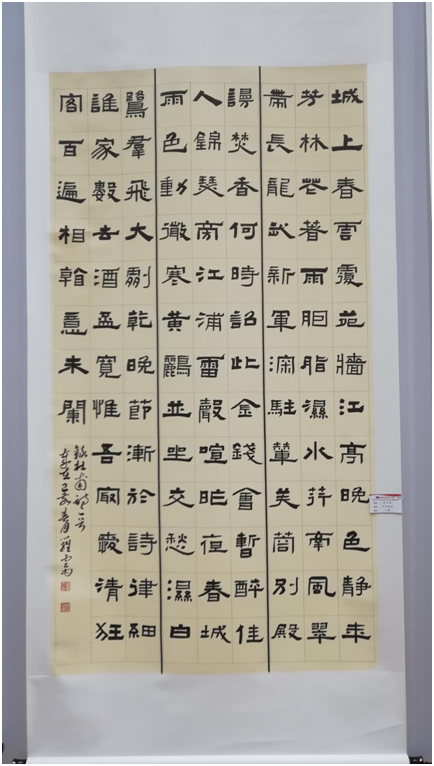 城上春雲覆苑牆江亭晚色靜年
芳林花著雨胭脂濕水荇牽風翠
帶長龍武新軍深駐輦芙蓉別殿
謾焚香何時詔此金錢會暫醉佳
人錦瑟旁江浦雷聲喧昨夜春城
雨色動微寒黃鸝並坐交愁濕白
鷺羣飛大劇乾晚節漸於詩律細
誰家數去酒盃寬惟吾最愛清狂
客百遍相看意未闌
錄杜甫詩二首
歲在己亥春月